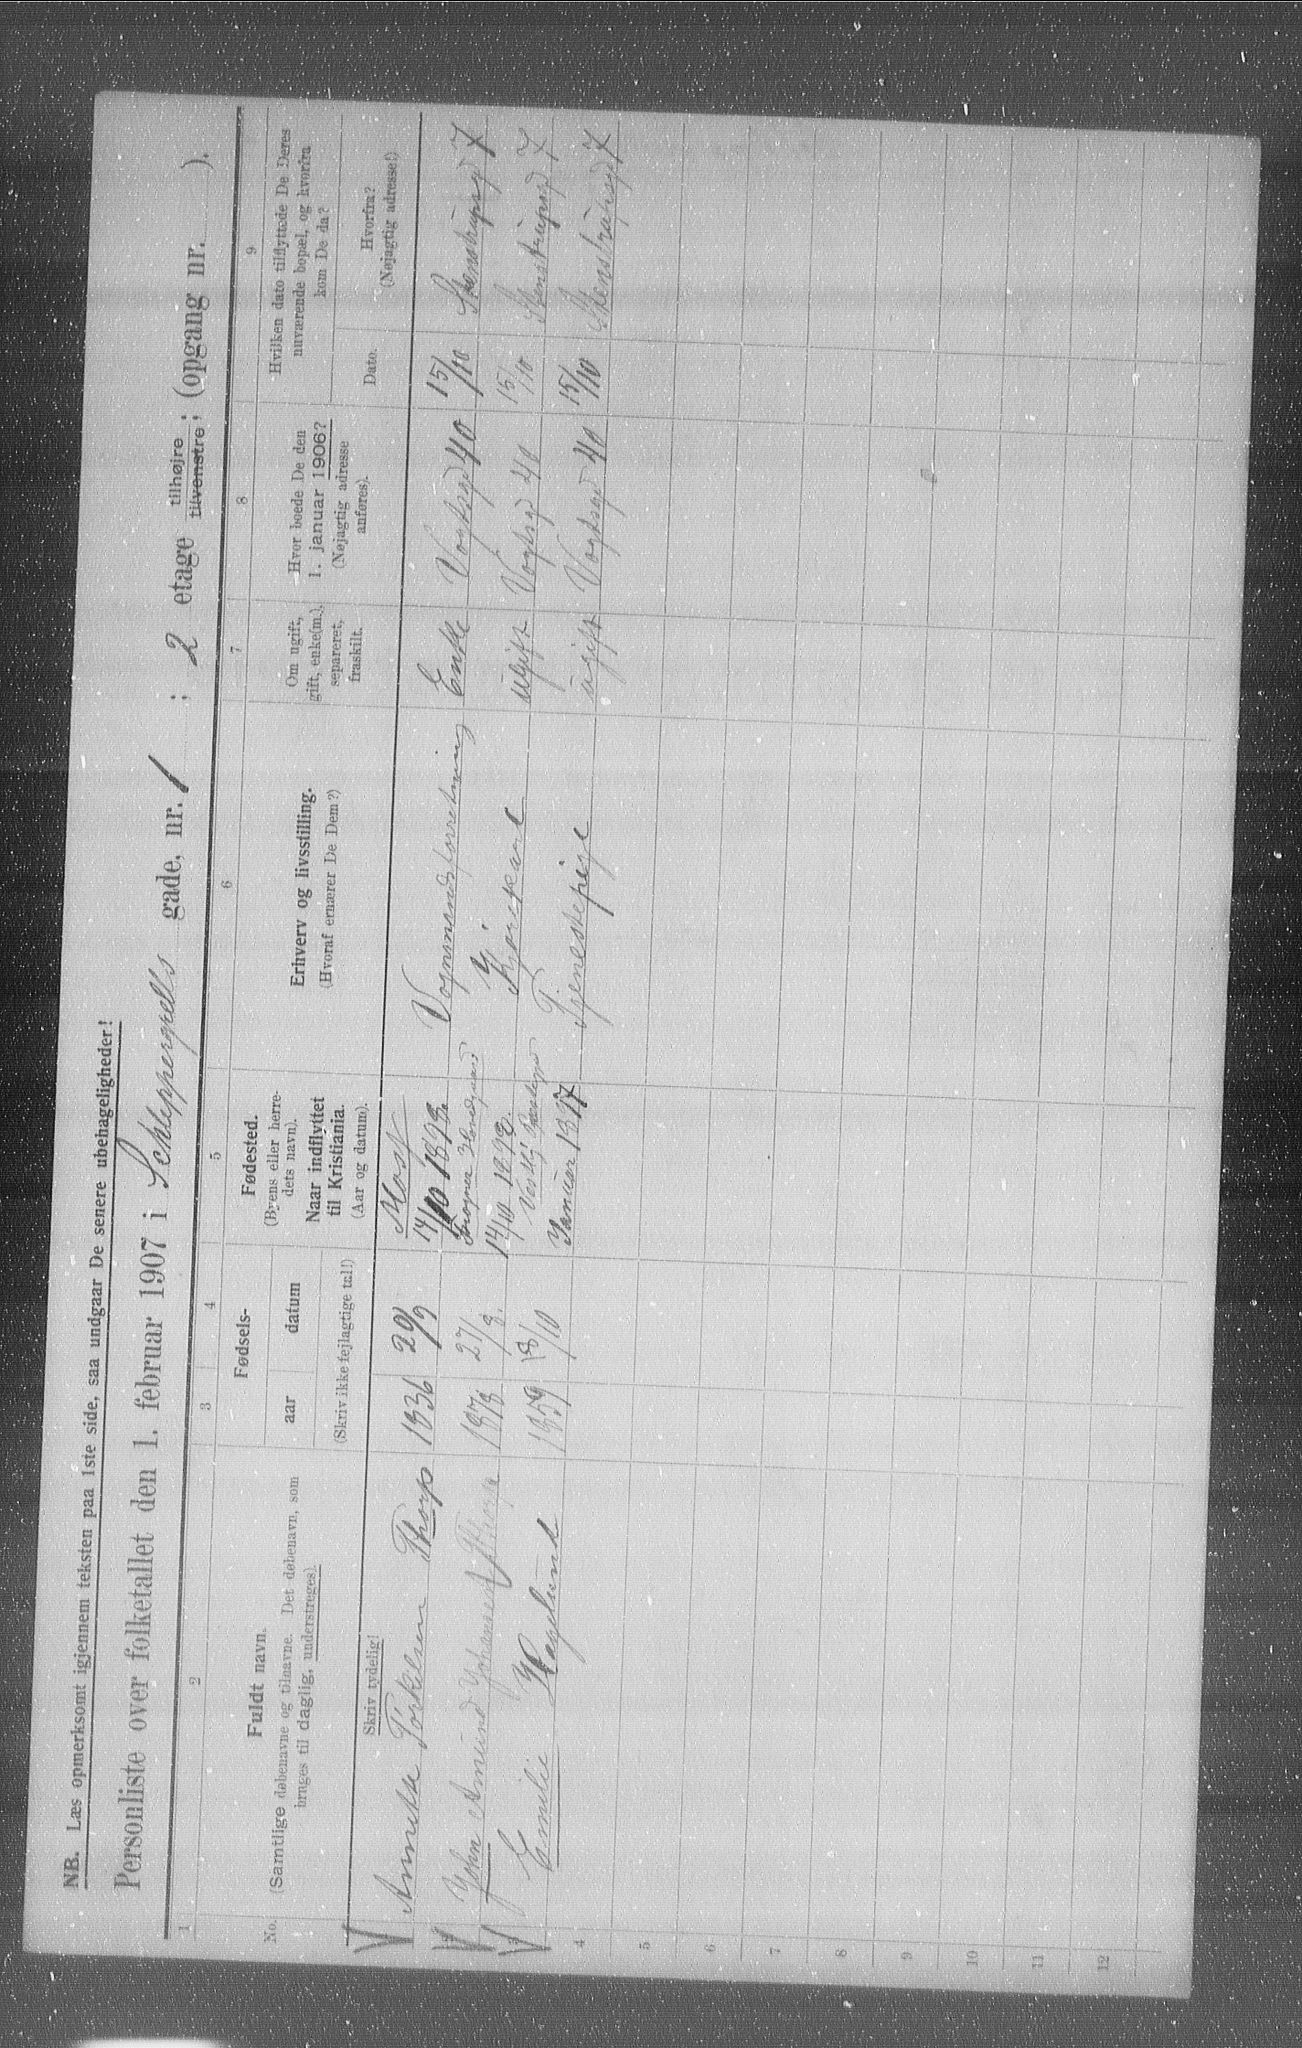 NB. Læs opmerksomt igjennem teksten paa 1ste side, saa undgaar De senere ubehageligheder!
Personliste over folketallet den 1. februar 1907 i Schleppergrells gade, nr. 1 ; 2 etage tilhøjre tilvenstre; (opgang nr. ).
1 2 3 4 5 6 7 8 9
No.
Fuldt navn.
(Samtlige døbenavne og tilnavne. Det døbenavn, som
bruges til daglig, understreges).
Fødsels-
aar datum
(Skriv ikke fejlagtige tal!)
Fødested.
(Byens eller herre-
dets navn).
Naar indflyttet
til Kristiania.
(Aar og datum).
Erhverv og livsstilling.
(Hvoraf ernærer De Dem?)
Om ugift,
gift, enke(m.),
separeret,
fraskilt.
Hvor boede De den
1. januar 1906?
(Nøjagtig adresse
anføres).
Hvilken dato tilflyttede De Deres
nuværende bopæl, og hvorfra
kom De da?
Dato.
Hvorfra?
(Nøjagtig adresse!)
Skriv tydelig!
Annekke Torkelsen Thorp 1836 29/9 Moss 14/10 1898. Vognmandsforretning Enke Vogtsgd 40 15/10 Stenstrupsgd 7
2 John Amund Johansen Thorp 1878 27/8. 14/10 1898. Kjørekarl ugift Vogtsgd 40 15/10 Stenstrupsgd 7
3 Emilie Hagelund 1859 18/10 Januar 1877 Tjenestepige ugift Vogtsgd 40 15/10 Stenstrupsgd 7
4
5
6
7
8
9
10
11
12